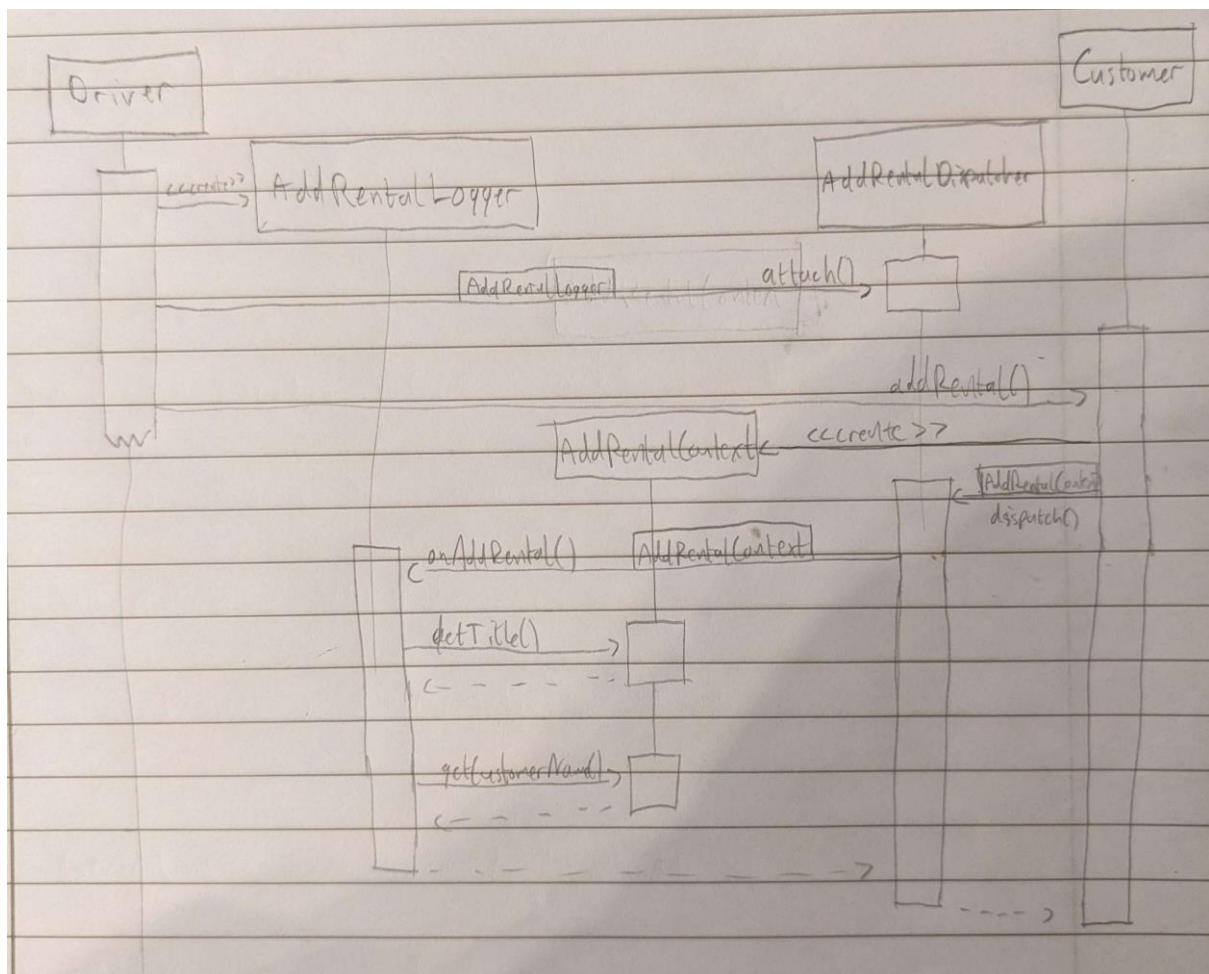 Driver
Customer
<<create>>
AddRentalLogger
AddRentalDispatcher
AddRentalLogger
attach()
addRental()
AddRentalContext
<<create>>
AddRentalContext
dispatch()
onAddRental()
AddRentalContext
getTitle()
getCustomerName()